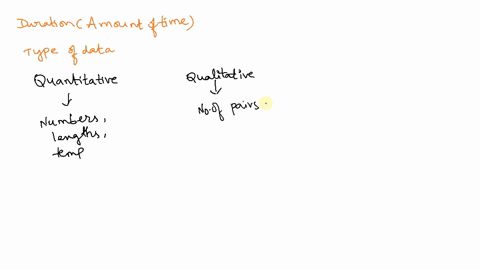 Duration (Amount of time)
Type of data
Quantitative
Qualitative
Numbers,
lengths,
temp
No. of pairs